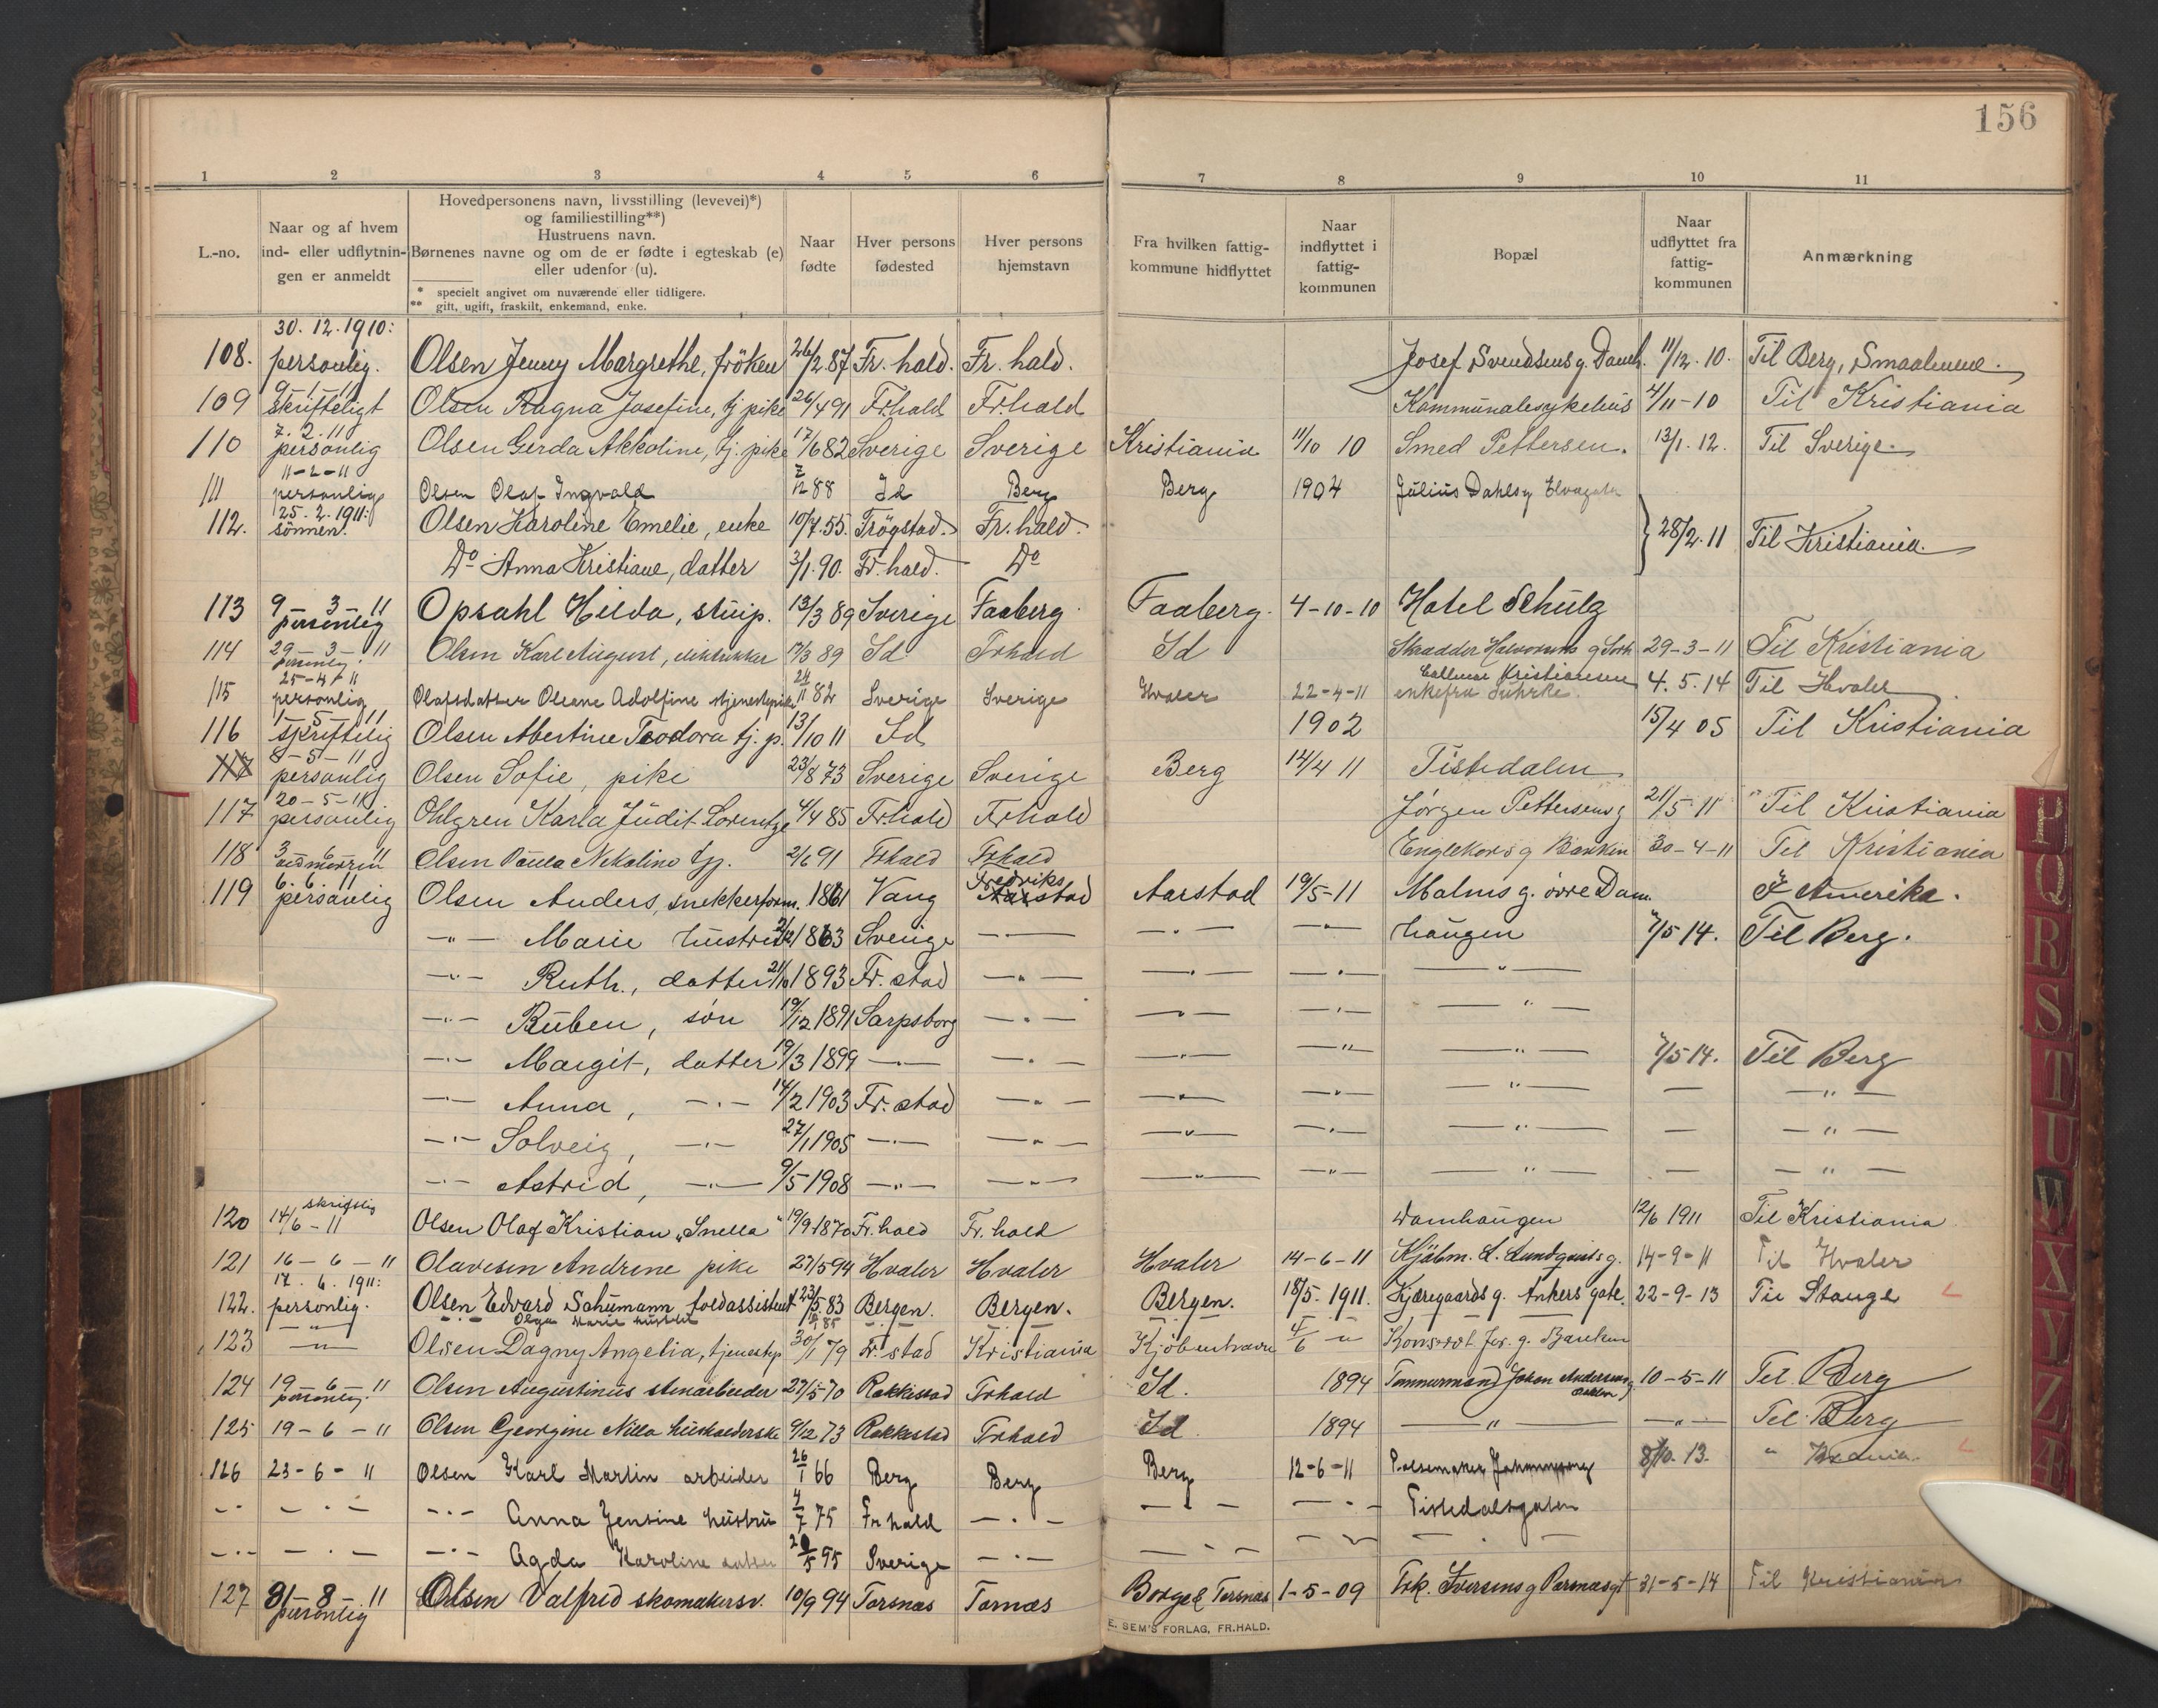 156
1 2 3 4 5 6 7 8 9 10 11
L.-no.
Naar og af hvem ind- eller udflytnin- gen er anmeldt
Hovedpersonens navn, livsstilling (levevei)*)
og familiestilling**)
Hustruens navn.
Børnenes navne og om de er fødte i egteskab (e)
eller udenfor (u).
* specielt angivet om nuværende eller tidligere.
** gift, ugift, fraskilt, enkemand, enke.
Naar fødte
Hver persons fødested
Hver persons hjemstavn
Fra hvilken fattig- kommune hidflyttet
Naar indflyttet i fattig- kommunen
Bopæl
Naar udflyttet fra fattig- kommunen
Anmærkning
30. 12. 1910:
108. personlig. Olsen Jenny Margrethe, frøken 26/2.87 Fr. hald. Fr. hald. Josef Svendsens g. Damh. 11/12. 10. Til Berg, Smaalenene.
9-1-11
109 skrifteligt Olsen Ragna Josefine, tj pike 26/4 91 Fr.hald Fr.hald Kommunalesykehus 4/11-10 Til Kristiania
7. 2. 11
110 personlig Olsen Gerda Akkoline, tj. pike 17/6 82 Sverige Sverige Kristiania 11/10 10 Smed Pettersen. 13/1. 12. Til Sverige
11-2-11
111 personlig Olsen Olaf Ingvald 7/12 88 Id Berg Berg 1904 Julius Dahlsg Elvegata
25. 2. 1911:
112. sønnen. Olsen Karoline Emelie, enke 10/7.55. Trøgstad. Fr. hald. 28/2. 11 Til Kristiania.
Do Anna Kristiane, datter 3/1. 90. Fr. hald. Do
113 9-3-11 personlig Opsahl Hilda, stuip. 13/3 89 Sverige Faaberg Faaberg. 4-10-10 Hotel Schulz
114 29-3-11 personlig. Olsen Karl August, 17/3 89 Id Frhald Id Skrædder Halvorsens g 29-3-11 Til Kristiania
25-4-11
115 personlig Olafsdatter Oleane Adolfine tjenestepike 24/11 82 Sverige Sverige Hvaler 22-4-11 Kristiansen enkefru Suhrke. 4. 5. 14 Til Hvaler
1-5-11
116 skriftelig Olsen Abertine Teodora tj. p. 13/10 11 Id 1902 15/4 05 Til Kristiania
8-5-11
117 personlig Olsen Sofie, pike 23/8 73 Sverige Sverige Berg 12/4 11 Tistedalen
20-5-11
117 personlig Ohlgren Karla Judit Lorentze 4/4 85 Frhald Frhald Jörgen Pettersensg 21/5-11 Til Kristiania
118 3-6-11 Olsen Paula Nekoline tjp. 2/6 91 Frhald Frhald Englekors g Banken 30-4-11 Til Kristiania
6. 6. 11
119 personlig Olsen Anders, snekkerform. 1861 Vang Fredriks Aarstad Aarstad 19/5-11 Malms g. øvre Dam F Amerika.
-"- Marie hustru 2/12 1863 Sverige -"- -"- -"- haugen 7/5 14. Til Berg.
-"- Ruth, datter 21/10 1893 Fr. stad -"- -"- -"- -"-
-"- Ruben, søn 19/12 1891 Sarpsborg -"- -"- -"- -"-
-"- Margit, datter 19/3 1899 -"- -"- -"- -"- -"- 7/5 14. Til Berg
-"- Anna, -"- 14/2 1903 Fr. stad -"- -"- -"- -"- — -"-
-"- Solveig, -"- 27/1 1905 -"- -"- -"- -"- -"- — -"-
-"- Astrid, -"- 9/5 1908 -"- -"- -"- -"- -"- — -"-
120 14/6-11 skriftlig Olsen Olaf Kristian „Snella" 19/9 1870 Fr. hald Fr. hald Damhaugen 12/6 1911 Til Kristiania
121 16-6-11 Olavesen Andrine pike 27/5 94 Hvaler Hvaler Hvaler 14-6-11 Kjøbm. L. Lundquists g. 14-9-11 Til Hvaler
17. 6. 1911:
122. personlig. Olsen Edvard Schumann toldassistent 23/5 83 Bergen. Bergen. Bergen. 18/5. 1911. Kjæregaards g. Ankers gate. 22-9-13 Til Stange
-"- Olga Marie hustru 85
123 -"- Olsen Dagny Angelia, tjenestep 30/1 79 Fr. stad Kristiania Kjöbenhavn 4/6 11 g. Banken
124 19-6-11 personlig. Olsen Augustinus stenarbeider 27/5 70 Rakkestad Frhald Id. 1894 Tømmermand Johan Andersens g 10-5-11 Til Berg
125 19-6-11 Olsen Georgine Nilla husholderske 9/12 73 Rakkestad Frhald Id 1894 -"- -"- Til Berg
126 23-6-11 Olsen Karl Martin arbeider 26/1 66 Berg Berg Berg 12-6-11 Pølsemaker 8/10. 13. " Kr.ania.
-"- -"- -"- Anna Jensine hustru 4/7 75 Fr hald -"- -"- -"- Tistedalsgaten
-"- -"- -"- Agda Karoline datter 20/5 95 Sverige -"- -"- -"- -"-
127 31-8-11 personlig Olsen Valfred skomakersv. 10/9 94 Torsnæs Tornæs Borge & Torsnæs 1-5-09 Frk. Iversens g 31-5-14 Til Kristiania
E. SEM'S FORLAG, FR.HALD.
P
Q
R
S
T
U
W
X
Y
Z
Æ